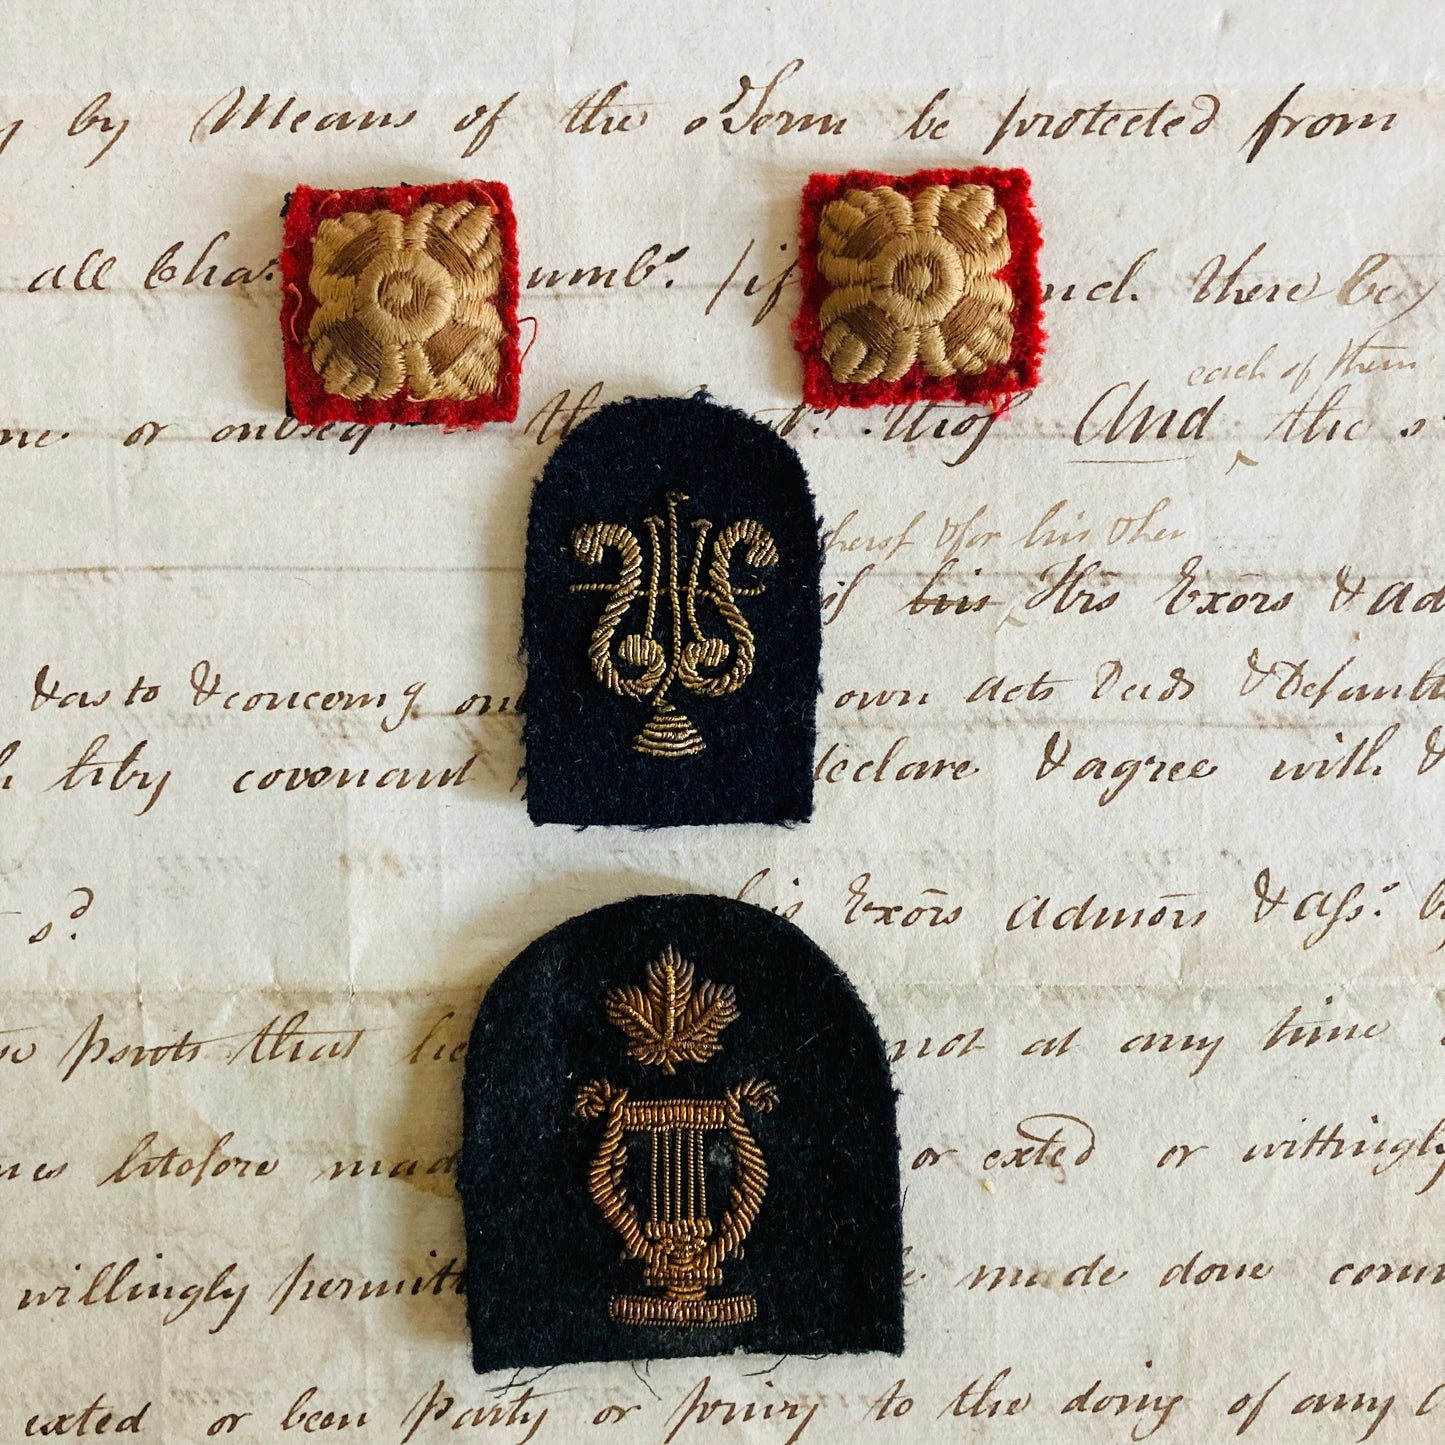 by Means of the Term be protected from
all Cha umbs. if nd. there be
each of them
or the And the
thereof & for his & her
of his Hrs Exors & Ad
& as to & concerning on own acts Deeds & Defaults
covenant declare & agree with &
sd. his Exors Admors & Ass. b
parts that he not at any time
heretofore mad or exted or wittingly
willingly permitt made done comm
exted or been party or privy to the doing of any